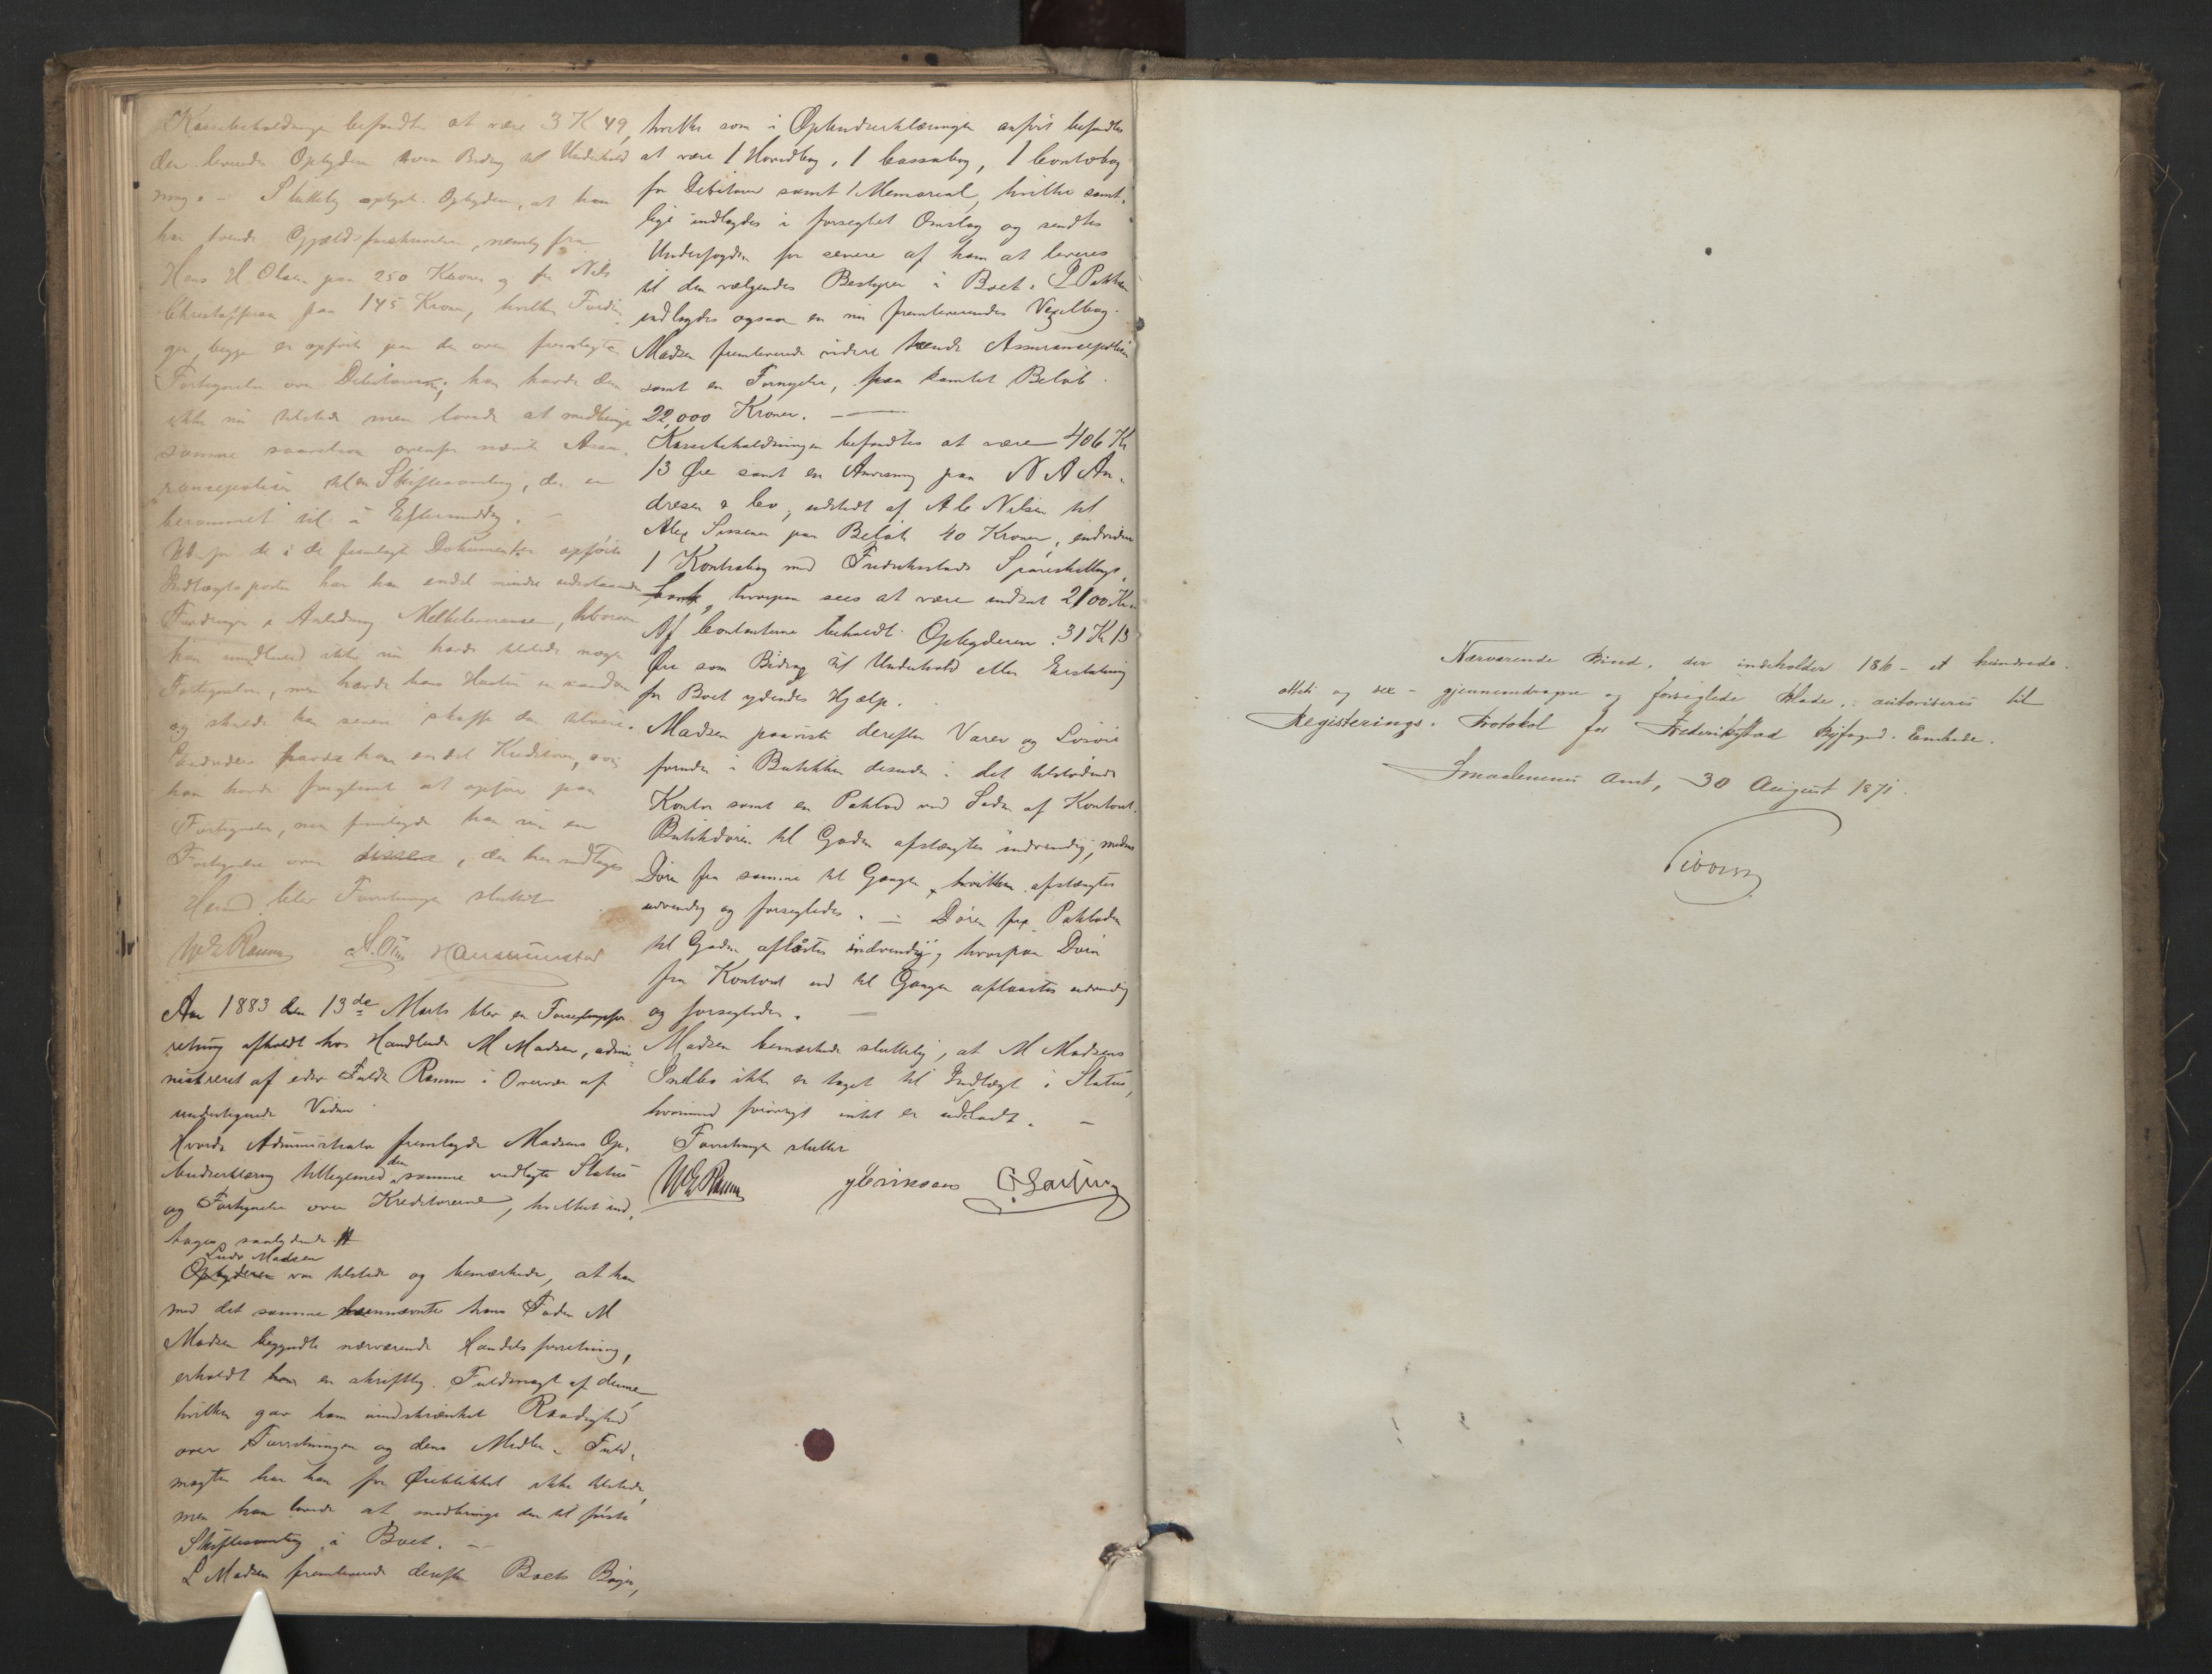 Kassebeholdningen befandtes at være 3 K 49,
den levnedes Opbyderen som Bidrag til Underhold
ning. – Sluttelig oplyste Opbyderen, at han
har tvende Gjældsforskrivelser, nemlig fra
Hans H Olsen paa 250 Kroner og fra Nils
Christoffersen paa 145 Kroner, hvilke Fordrin
ger begge er opførte paa den oven fremlagte
Fortegnelse over Debitorerne; han havde dem
ikke nu tilstede men lovede at medbringe
samme saavelsom ovenfor nævnte Assu
rancepolice til en Skiftesamling, der er
berammet til i Eftermiddag. –
Udenfor de i de fremlagte Dokumenter opførte
Indtægtsposter har han endel mindre udestaaende
Fordringer i Anledning Melkeleverance, hvorover
han imidlertid ikke nu havde tilstede nogen
Fortegnelse, men havde hans Hustru en saadan
og skulde han senere skaffe den tilveie.
Endvidere havde han endel Kreditorer, som
han havde forglemt at opføre paa
Fortegnelsen, men fremlagde han nu en
Fortegnelse over disse, der her indtages
Hermed blev Forretningen sluttet
Aar 1883 den 13de Marts blev en Forseglingsfor
retning afholdt hos Handlende M Madsen, admi
nistreret af edsv Fuldm Ramm i Overvær af
undertegnede Vidner
Hvorda Administrator fremlagde Madsens Op
budserklæring tilligemed den samme vedlagte Status
og Fortegnelse over Kreditorerne, hvilket ind
tages saalydende #
Ludv Madsen
Opbyderen var tilstede og bemærkede, at han
med det samme hans Fader M
Madsen begyndte nærværende Handelsforretning,
erholdt han en skriftlig Fuldmagt af denne
hvilken gav ham uindskrænket Raadighed
over Forretningen og dens Midler. Fuld
magten har han for Øieblikket ikke tilstede,
men han lovede at medbringe den til første
Skiftesamling i Boet. –
L Madsen fremleverede derefter Boets Bøger,
hvilke som i Opbudserklæringen anført befandtes
at være 1 Hovedbog, 1 Cassabog, 1 Contobog
for Debitorer samt 1 Memorial, hvilke samt
lige indlagdes i forseglet Omslag og sendtes
Underfogden for senere af ham at leveres
til den vælgendes Bestyrer i Boet. I Pakken
indlagdes ogsaa en nu fremleverendes Vexelbog.
Madsen fremleverede videre tvende Assurancepolicer
samt en Fornyelse, paa samlet Beløb
22,000 Kroner. –
Kassebeholdningen befandtes at være 406 Kr
13 Øre samt en Anvisning paa N A An
dresen & Co, udstedt af A C Nilsen til
Alex Sissener paa Beløb 40 Kroner, endvidere
1 Kontrabog med Fredriksstads Spareskillings
bank, hvorpaa sees at være indsat 2100 Kr.
Af Contanterne beholdt Opbyderen 31 K 13
Øre som Bidrag til Underhold eller Erstatning
for Boet ydendes Hjælp.
Madsen paaviste derefter Varer og Løsøre
forinden i Butikken desuden i det tilstødende
Kontor samt en Pakbod ved Siden af Kontoret.
Butikdøren til Gaden afstængtes indvendig, medens
Døren fra samme til Gangen hvilken afstængtes
udvendig og forsegledes. – Døren fra Pakboden
til Gaden aflåstes indvendig, hvorpaa Døren
fra Kontoret ud til Gangen aflaastes udvendig
og forsegledes. –
Madsen bemærkede sluttelig, at M Madsens
Indbo ikke er taget til Indtægt i Status,
hvorimod forøvrigt intet er udeladt. –
Forretningen sluttet
W E Ramm
Nærværende Bind, der indeholder 186 – et hundrede
otteti og sex – gjennemdragne og forseglede Blade, autoriseres til
Registerings-Protokol for Frederikstad Byfoged-Embede.
Smaalenenes Amt, 30 August 1871.